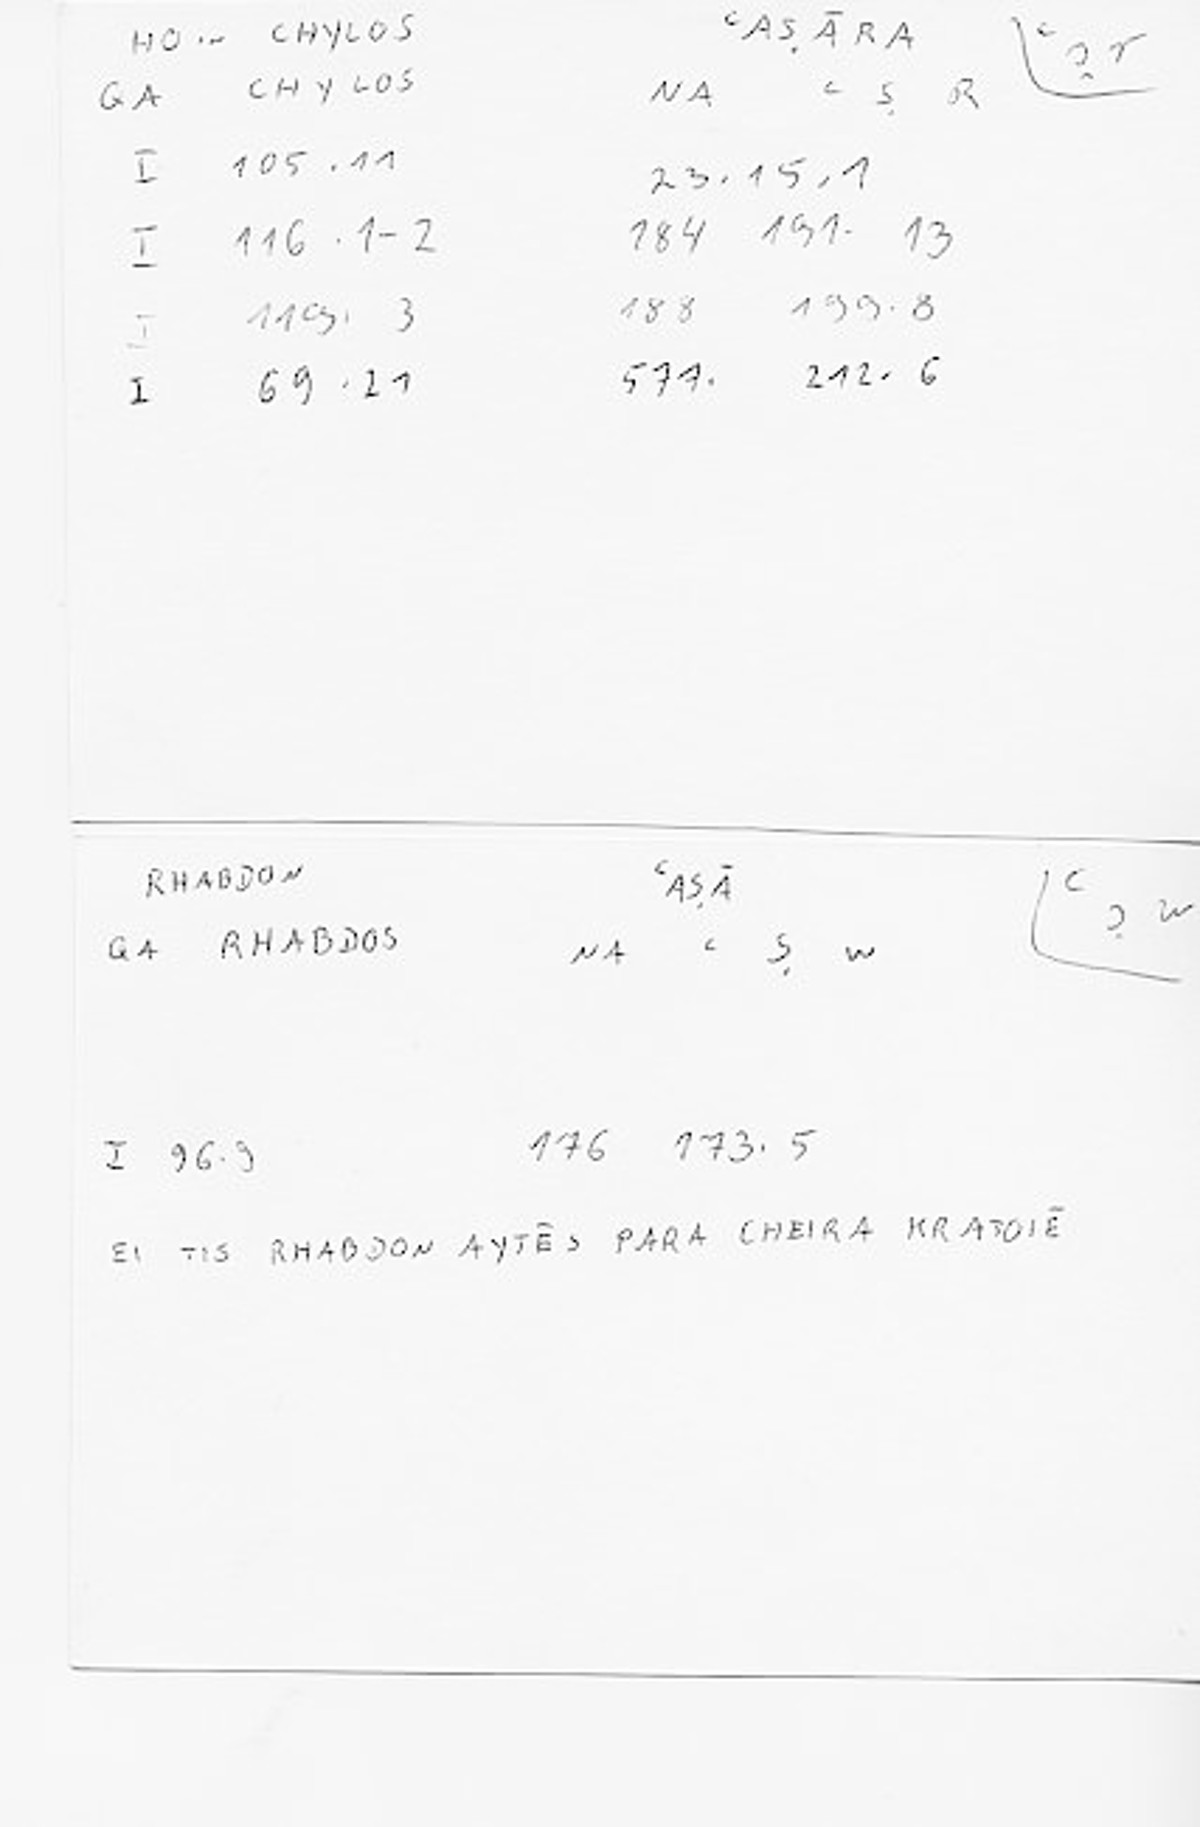 HO .. CHYLOS ʿAṢĀRA ʿṣr
GA CHYLOS NA ʿ Ṣ R
I 105.11 23.15,1
I 116.1-2 184 191. 13
I 119. 3 188 199.8
I 69.21 571. 212.6
RHABDON ʿAṢĀ ʿṣw
GA RHABDOS NA ʿ Ṣ W
I 96.9 176 173.5
EI TIS RHABDON AYTĒS PARA CHEIRA KRATOIĒ